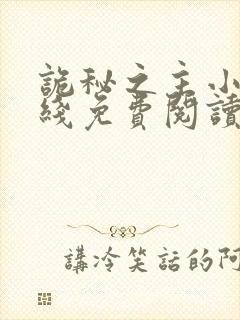 詭秘之主小
綫免費閱讀
講冷笑話的阿